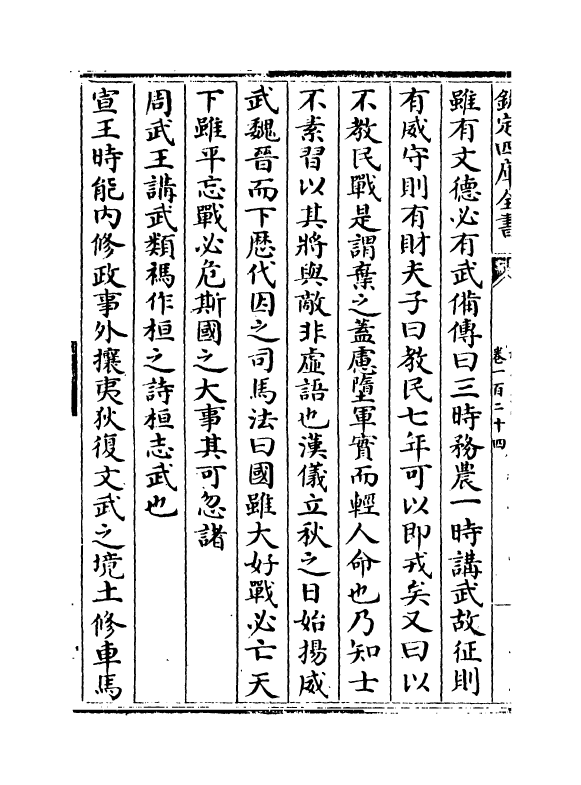 欽定四庫全書
卷一百二十四
雖有文德必有武備傳曰三時務農一時講武故征則
有威守則有財夫子曰教民七年可以即戎矣又曰以
不教民戰是謂棄之蓋慮墮軍實而輕人命也乃知士
不素習以其將與敵非虛語也漢儀立秋之日始揚威
武魏晉而下歴代因之司馬法曰國雖大好戰必亡天
下雖平忘戰必危斯國之大事其可忽諸
周武王講武類禡作桓之詩桓志武也
宣王時能内修政事外攘夷狄復文武之境土修車馬